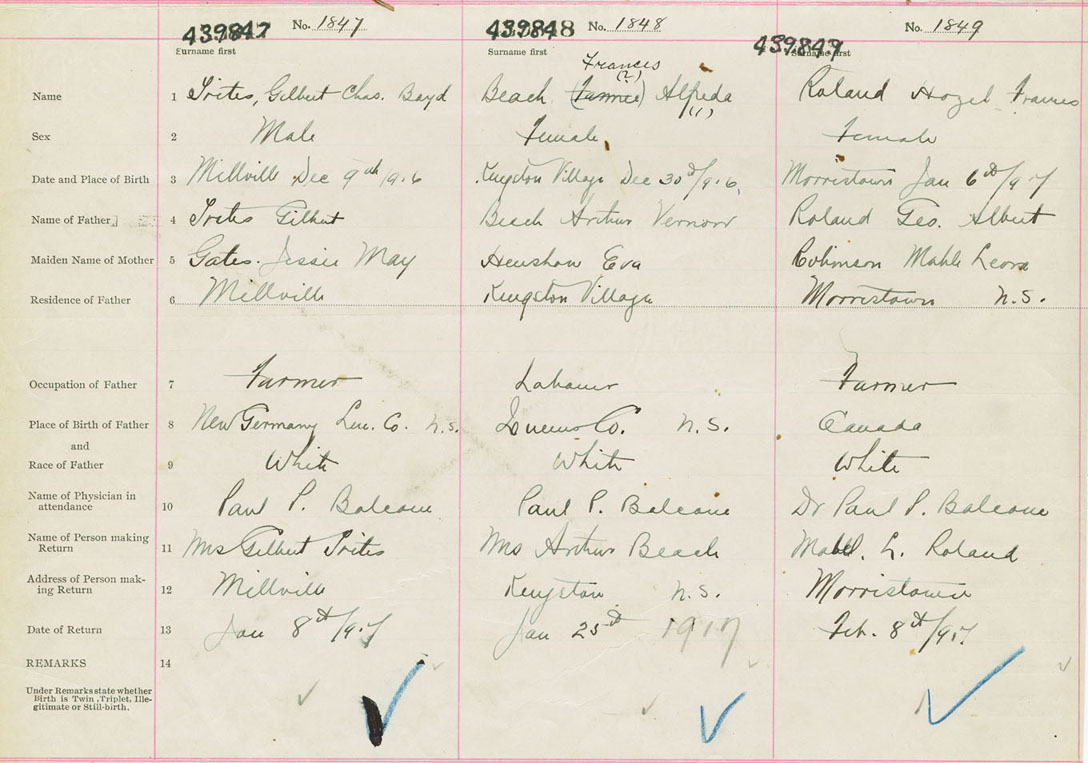 439847 No. 1847 439848 No. 1848 439849 No. 1849
Surname first Surname first Surname first
Frances
(2)
Name 1 Trites, Gilbert Chas. Boyd Beach (Fannie) Alfreda Roland Hazel Frances
(1)
Sex 2 Male Female Female
Date and Place of Birth 3 Millville Dec 9th/916 Kingston Village Dec 30th/916 Morristown Jan 6th/917
Name of Father 4 Trites Gilbert Beach Arthur Vernon Roland Geo. Albert
Maiden Name of Mother 5 Gates. Jessie May Henshaw Eva Robinson Mable Leora
Residence of Father 6 Millville Kingston Village Morristown N.S.
Occupation of Father 7 Farmer Labourer Farmer
Place of Birth of Father 8 New Germany Lun. Co. N.S. Queens Co. N.S. Canada
and
Race of Father 9 White White White
Name of Physician in
attendance 10 Paul P. Balcom Paul P. Balcom Dr Paul P. Balcom
Name of Person making
Return 11 Mrs Gilbert Trites Mrs Arthur Beach Mabel. L. Roland
Address of Person mak-
ing Return 12 Millville Kingston N.S. Morristown
Date of Return 13 Jan 8th/917 Jan 25th 1917 Feb. 8th/917
REMARKS 14
Under Remarks state whether
Birth is Twin, Triplet, Ille-
gitimate or Still-birth.